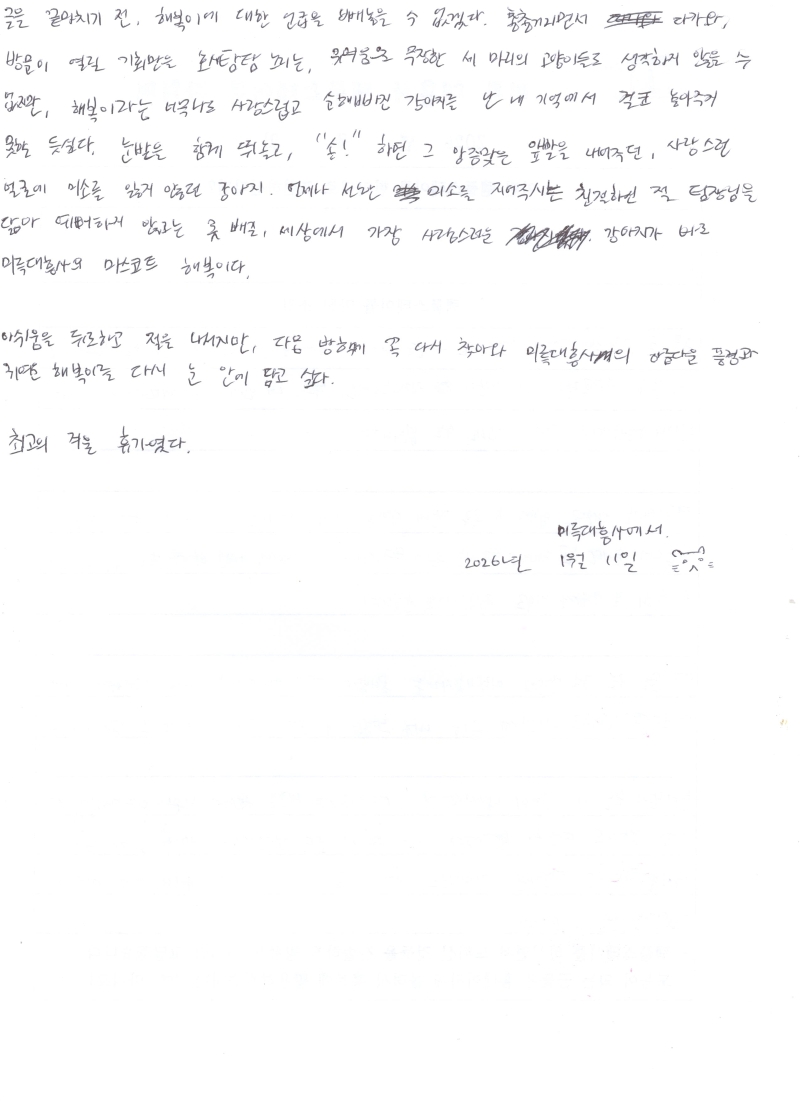 글을 끝마치기 전, 해복이에 대한 언급을 빼놓을 수 없겠다. 총총거리면서 다가와,
방문이 열릴 기회만을 호시탐탐 노리는, 귀여움으로 무장한 세 마리의 고양이들도 생각하지 않을 수
없지만, 해복이라는 너무나도 사랑스럽고 순해빠진 강아지를 난 내 기억에서 결코 놓아주지
못할 듯싶다. 눈밭을 함께 뛰놀고, "손!" 하면 그 앙증맞은 앞발을 내어주던, 사랑스런
얼굴에 미소를 잃지 않던 강아지. 언제나 선한 미소를 지어주시는 친절하신 절 팀장님을
닮아 예뻐하지 않고는 못 배길, 세상에서 가장 사랑스러운 강아지가 바로
미륵대흥사의 마스코트 해복이다.
아쉬움을 뒤로하고 절을 나서지만, 다음 방학에 꼭 다시 찾아와 미륵대흥사의 아름다운 풍경과
귀여운 해복이를 다시 눈 안에 담고 싶다.
최고의 겨울 휴가였다.
미륵대흥사에서.
2026년 1월 11일